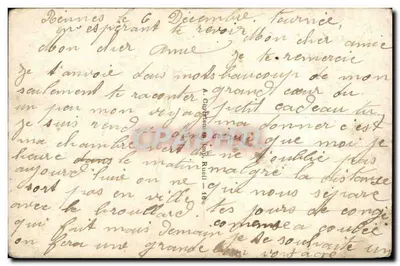 Rennes le 6 Décembre
mon cher amie
Je t'envoie deux mots
seulement te raconter
un peu mon voyage
je suis rendu
ma chambre
heure dans le matin
aujourd'hui on ne
sort pas en ville
avec le brouillard
qui fait mais demain
on fera une grande
tournée,
en espérant te revoir
mon cher amie
je te remercie
beaucoup de mon
grand cœur du
petit cadeau tu
ma donner c'est
que moi je
ne t'oublie pas
malgré la distance
que nous sépare
tes jours de congé
je te souhaite un
bon voyage